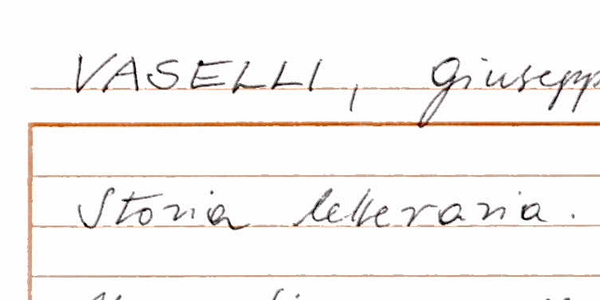 VASELLI, Giusepp
Storia letteraria.